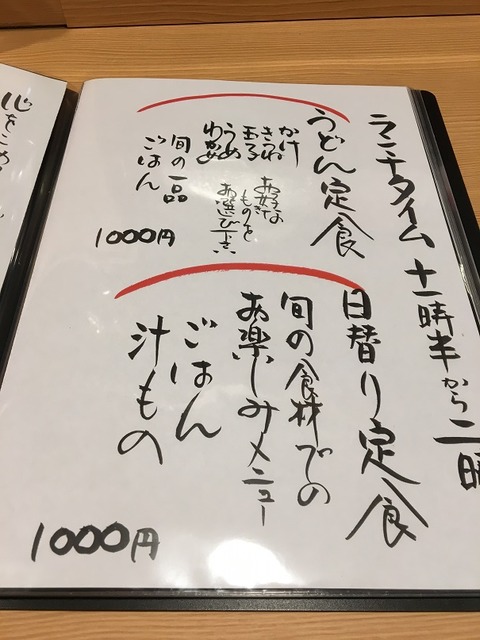 ランチタイム 十一時半から二時
うどん定食
かけ
きつね
玉子
うめ
わかめ
お好きな
ものを
お選び下さい
旬の一品
ごはん
1000円
日替り定食
旬の食材での
お楽しみメニュー
ごはん
汁もの
1000円
心をこめ